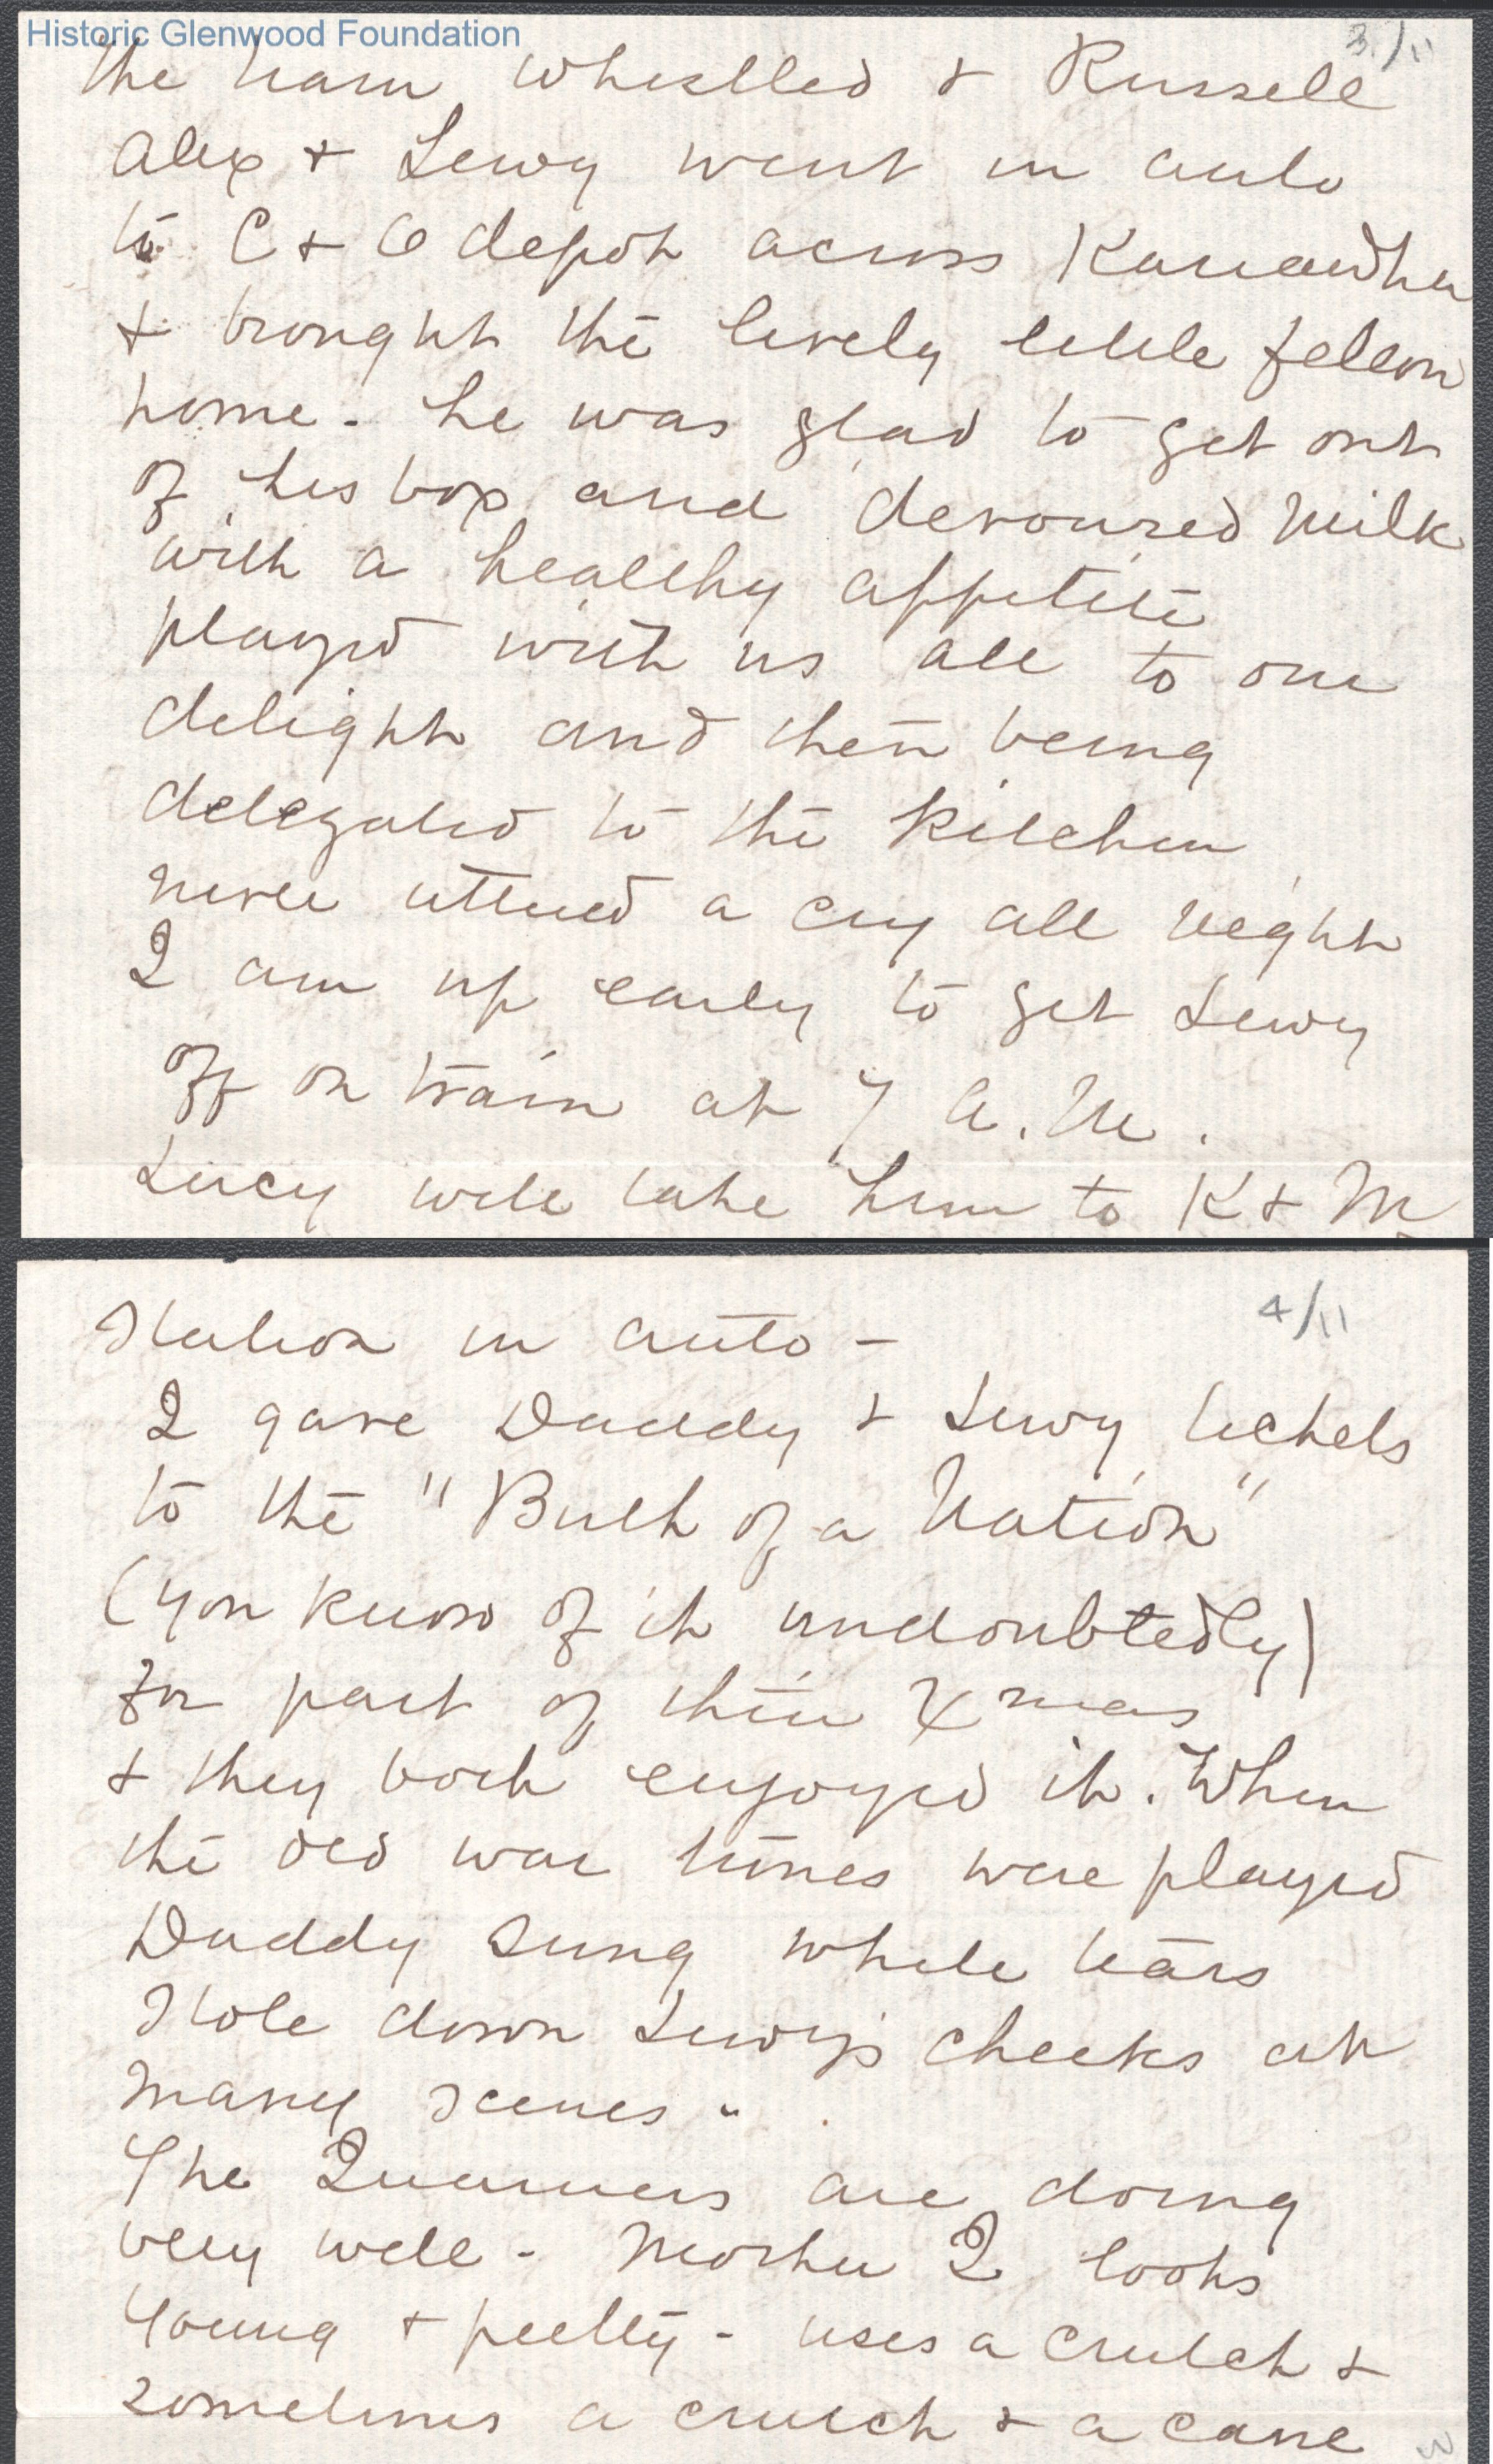 Historic Glenwood Foundation
3/11
the train whistled & Russell
Alex & Lewy went in auto
to C & O depot across Kanawha
& brought the lively little fellow
home. he was glad to get out
of his box and devoured milk
with a healthy appetite
played with us all to our
delight and then being
delegated to the kitchen
never uttered a cry all night
I am up early to get Lewy
off on train at 7 A.M.
Lucy will take him to K & M
4/11
Station in auto -
I gave Daddy & Lewy tickets
to the "Birth of a Nation"
(you know of it undoubtedly)
for part of their Xmas
& they both enjoyed it. When
the old war tunes were played
Daddy sung while tears
stole down Lewy's cheeks at
many scenes -
The Quarriers are doing
very well - Mother Q looks
young & pretty - uses a crutch &
sometimes a crutch & a cane